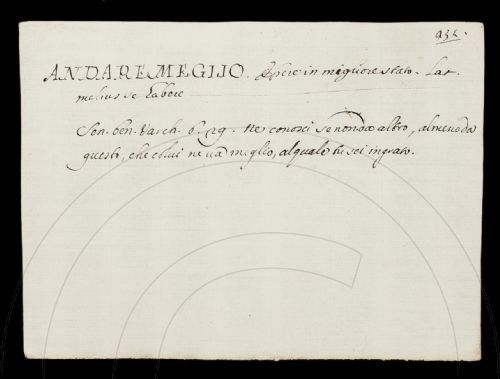 952.
ANDARE MEGLIO. Essere in migliore stato. Lat.
melius se habere
Sen. ben. Varch. 6. 29. Ne conosci se non da altro, almeno da
questi, che colui ne va meglio, al quale tu sei ingrato.